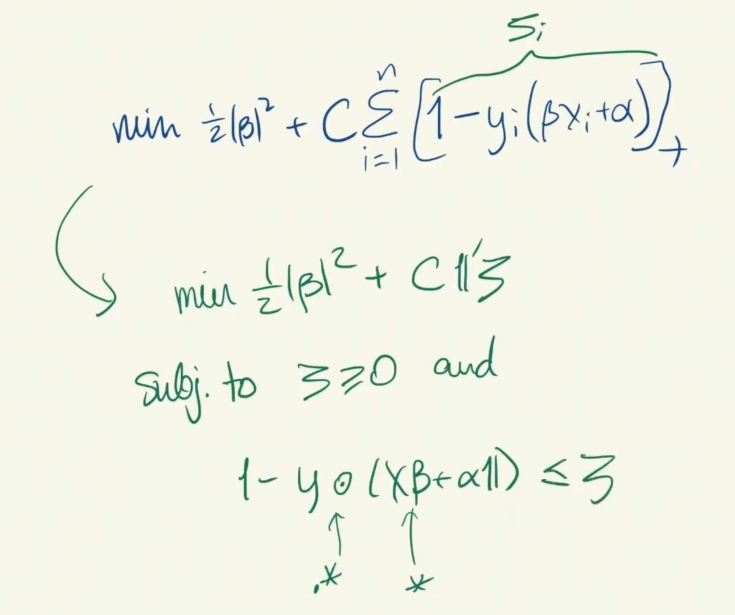 ξᵢ
min ½|β|² + C Σⁿᵢ₌₁ [1 - yᵢ(βxᵢ+α)]₊
min ½|β|² + C 𝟙'ξ
subj. to ξ ≥ 0 and
1 - y ⊙ (Xβ + α𝟙) ≤ ξ
.* *